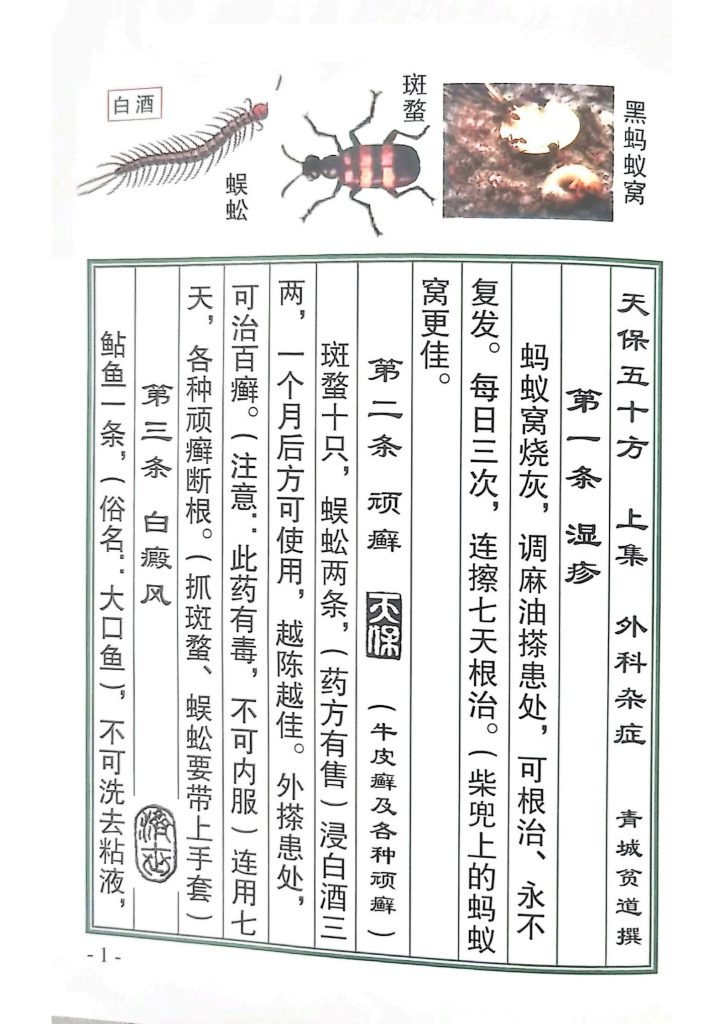 白酒
蜈蚣
斑蝥
黑蚂蚁窝
天保五十方 上集 外科杂症 青城贫道撰
第一条 湿疹
蚂蚁窝烧灰，调麻油搽患处，可根治、永不
复发。每日三次，连擦七天根治。（柴兜上的蚂蚁
窝更佳。
第二条 顽癣 天保 （牛皮癣及各种顽癣）
斑蝥十只，蜈蚣两条，（药方有售）浸白酒三
两，一个月后方可使用，越陈越佳。外搽患处，
可治百癣。（注意：此药有毒，不可内服）连用七
天，各种顽癣断根。（抓斑蝥、蜈蚣要带上手套）
第三条 白癜风
鲇鱼一条，（俗名：大口鱼），不可洗去粘液，
- 1 -